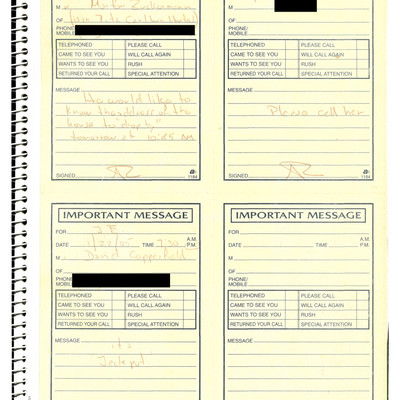 M Morter Zuckerman
OF (via Fita Carlton Hotel)
PHONE/
MOBILE
TELEPHONED PLEASE CALL
CAME TO SEE YOU WILL CALL AGAIN
WANTS TO SEE YOU RUSH
RETURNED YOUR CALL SPECIAL ATTENTION
MESSAGE
He would like to
know the address of the
house to "drop by"
tomorrow at 10:45 AM
SIGNED 1184
M
OF
PHONE/
MOBILE
TELEPHONED PLEASE CALL
CAME TO SEE YOU WILL CALL AGAIN
WANTS TO SEE YOU RUSH
RETURNED YOUR CALL SPECIAL ATTENTION
MESSAGE
Please call her
SIGNED 1184
IMPORTANT MESSAGE
FOR J.E
DATE 1/22/05 TIME 7:30 A.M. P.M.
M David Copperfield
OF
PHONE/
MOBILE
TELEPHONED PLEASE CALL
CAME TO SEE YOU WILL CALL AGAIN
WANTS TO SEE YOU RUSH
RETURNED YOUR CALL SPECIAL ATTENTION
MESSAGE
it's
Jackpot
IMPORTANT MESSAGE
FOR
DATE TIME A.M. P.M.
M
OF
PHONE/
MOBILE
TELEPHONED PLEASE CALL
CAME TO SEE YOU WILL CALL AGAIN
WANTS TO SEE YOU RUSH
RETURNED YOUR CALL SPECIAL ATTENTION
MESSAGE